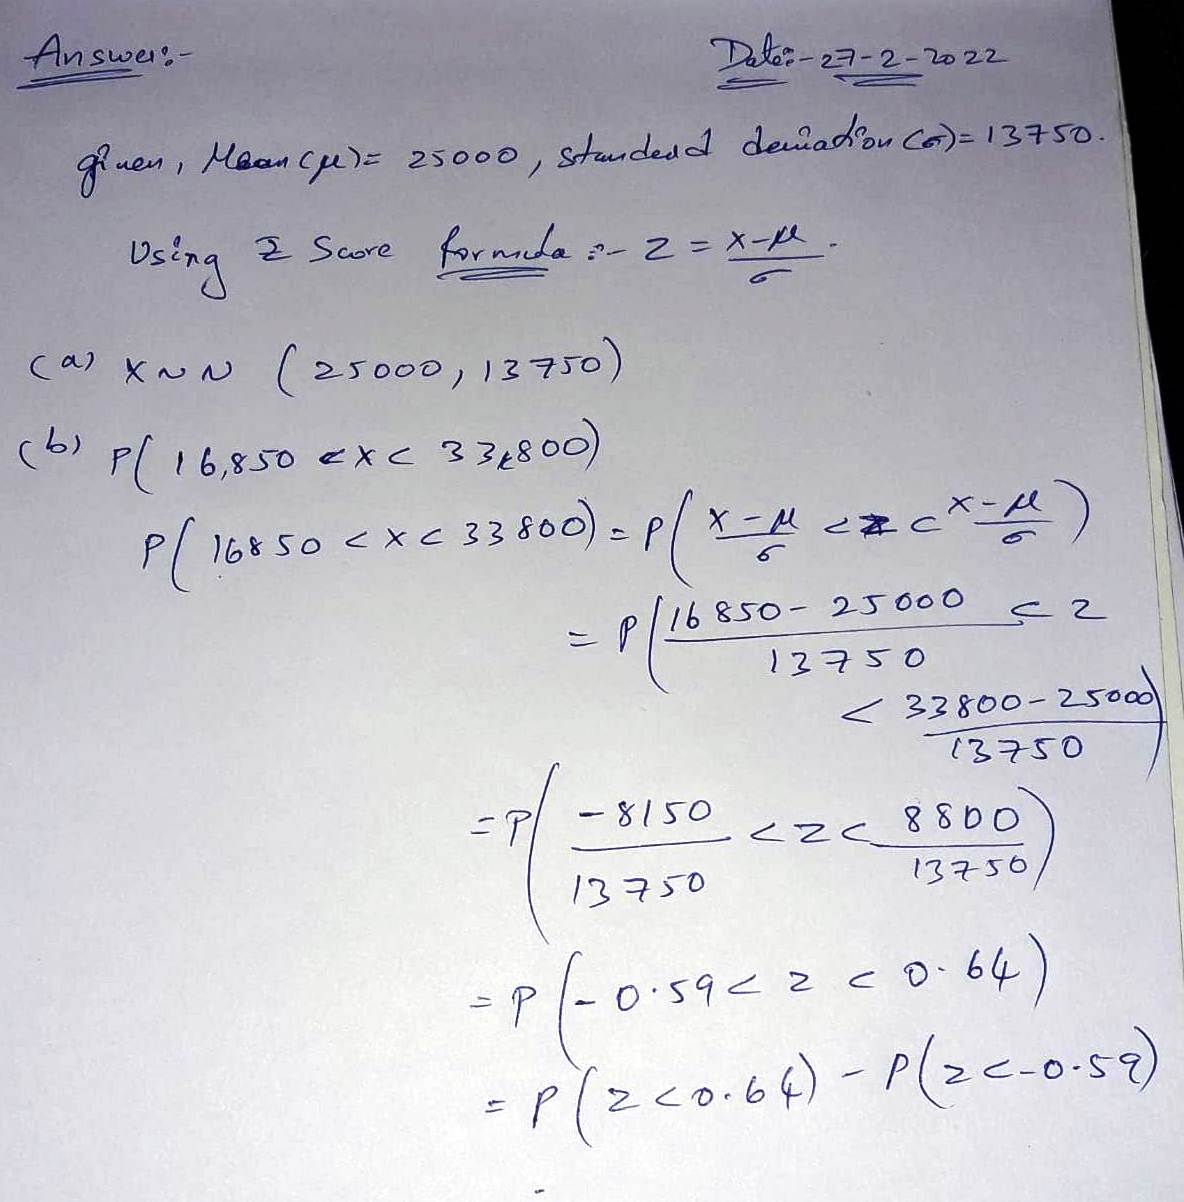 Answer:- Date:- 27-2-2022
given, Mean (μ) = 25000, standard deviation (σ) = 13750.
Using Z Score formula :- Z = (x-μ)/σ.
(a) X ~ N (25000, 13750)
(b) P(16,850 < x < 33,800)
P(16850 < x < 33800) = P((x-μ)/σ < z < (x-μ)/σ)
= P((16850 - 25000)/13750 < z
< (33800 - 25000)/13750)
= P(-8150/13750 < z < 8800/13750)
= P(-0.59 < z < 0.64)
= P(z < 0.64) - P(z < -0.59)